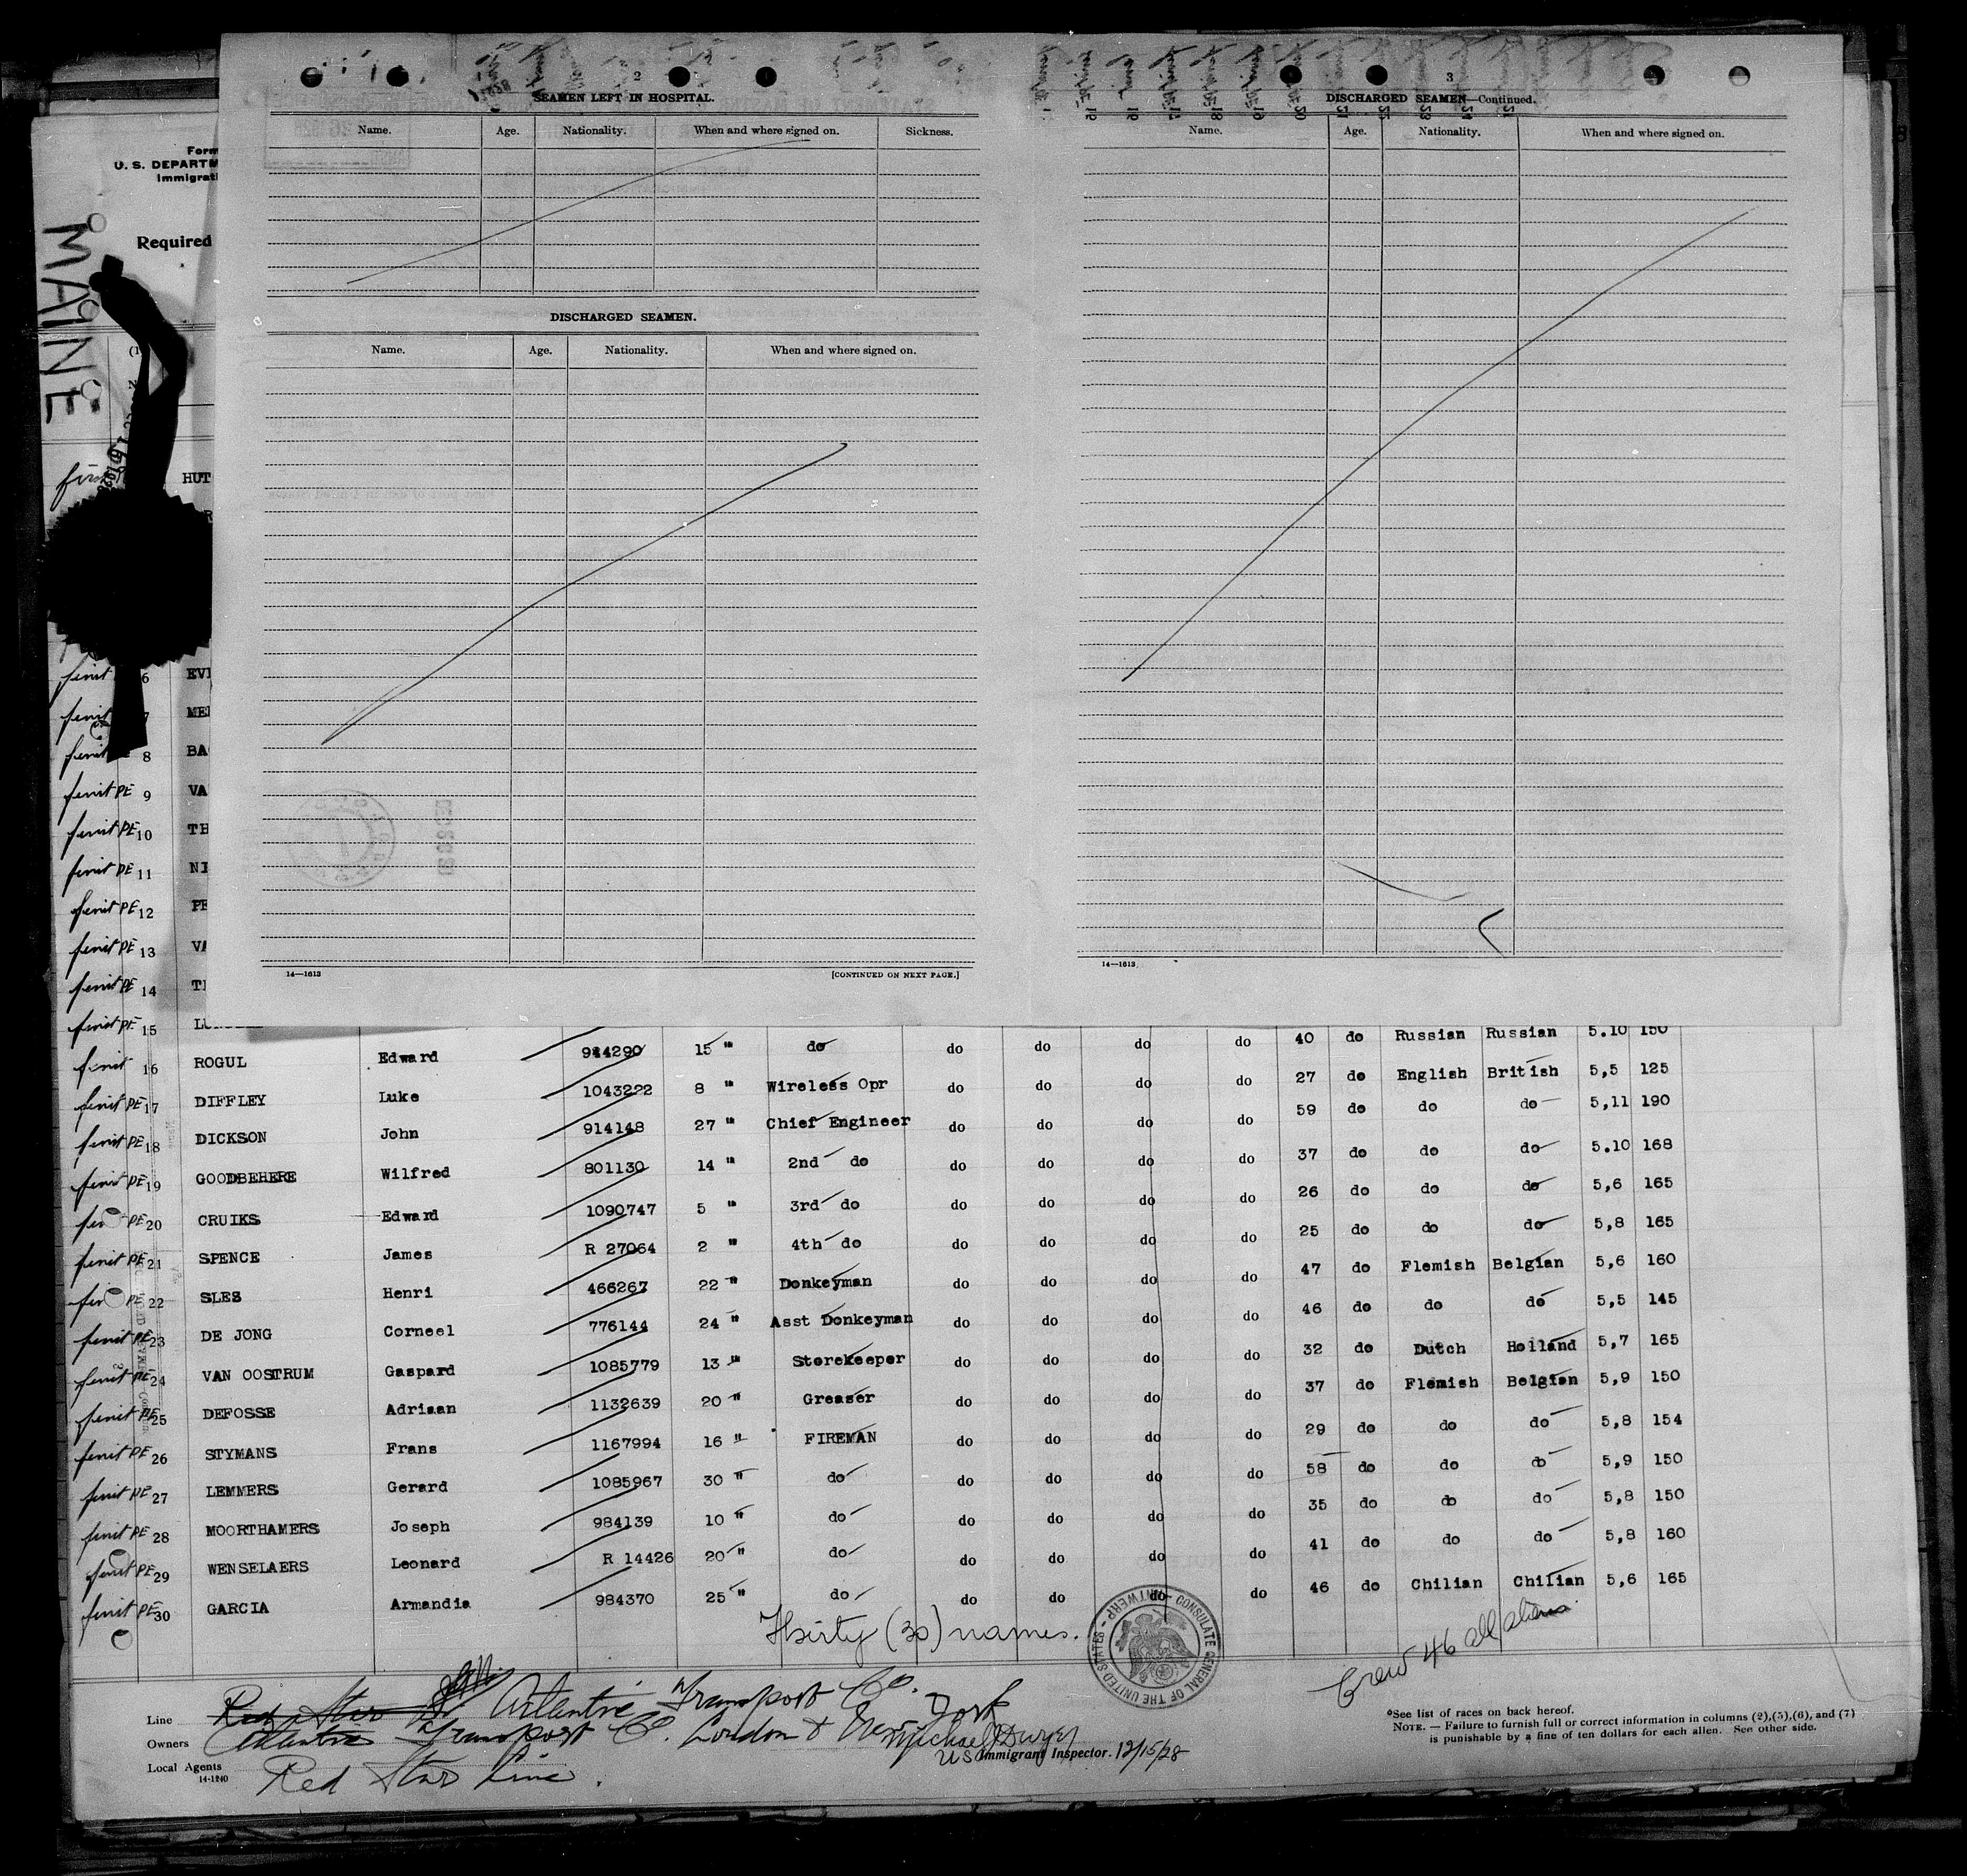 2
SEAMEN LEFT IN HOSPITAL.
Name. Age. Nationality. When and where signed on. Sickness.
DISCHARGED SEAMEN.
Name. Age. Nationality. When and where signed on.
14—1613 [CONTINUED ON NEXT PAGE.]
3
DISCHARGED SEAMEN—Continued.
Name. Age. Nationality. When and where signed on.
14—1613
Form
U. S. DEPARTM
Immigrati
Required
MAINE
HUT
6 EVE
7 MER
8 BA
9 VA
PE 10 TH
PE 11 NI
PE 12 PE
PE 13 VA
PE 14 TI
PE 15
16 ROGUL Edward 984290 15 " do do do do do 40 do Russian Russian 5.10 150
PE 17 DIFFLEY Luke 1043222 8 " Wireless Opr do do do do 27 do English British 5,5 125
PE 18 DICKSON John 914148 27 " Chief Engineer do do do do 59 do do do 5,11 190
PE 19 GOODBEHERE Wilfred 801130 14 " 2nd do do do do do 37 do do do 5.10 168
PE 20 CRUIKS Edward 1090747 5 " 3rd do do do do do 26 do do do 5,6 165
PE 21 SPENCE James R 27064 2 " 4th do do do do do 25 do do do 5,8 165
PE 22 SLES Henri 466267 22 " Donkeyman do do do do 47 do Flemish Belgian 5,6 160
PE 23 DE JONG Corneel 776144 24 " Asst Donkeyman do do do do 46 do do do 5,5 145
PE 24 VAN OOSTRUM Gaspard 1085779 13 " Storekeeper do do do do 32 do Dutch Holland 5,7 165
PE 25 DEFOSSE Adriaan 1132639 20 " Greaser do do do do 37 do Flemish Belgian 5,9 150
PE 26 STYMANS Frans 1167994 16 " FIREMAN do do do do 29 do do do 5,8 154
PE 27 LEMMERS Gerard 1085967 30 " do do do do do 58 do do do 5,9 150
PE 28 MOORTHAMERS Joseph 984139 10 " do do do do do 35 do do do 5,8 150
PE 29 WENSELAERS Leonard R 14426 20 " do do do do do 41 do do do 5,8 160
PE 30 GARCIA Armandia 984370 25 " do do do do do 46 do Chilian Chilian 5,6 165
Thirty (30) names.
CONSULATE GENERAL OF THE UNITED STATES - ANTWERP -
Crew 46 all aliens
Line Red Star Atlantic Transport Co.
Owners Atlantic Transport Co. London & New York
Michael J Dwyer
US Immigrant Inspector. 12/15/28
Local Agents Red Star Line.
14-1240
*See list of races on back hereof.
NOTE. — Failure to furnish full or correct information in columns (2),(5),(6), and (7)
is punishable by a fine of ten dollars for each alien. See other side.